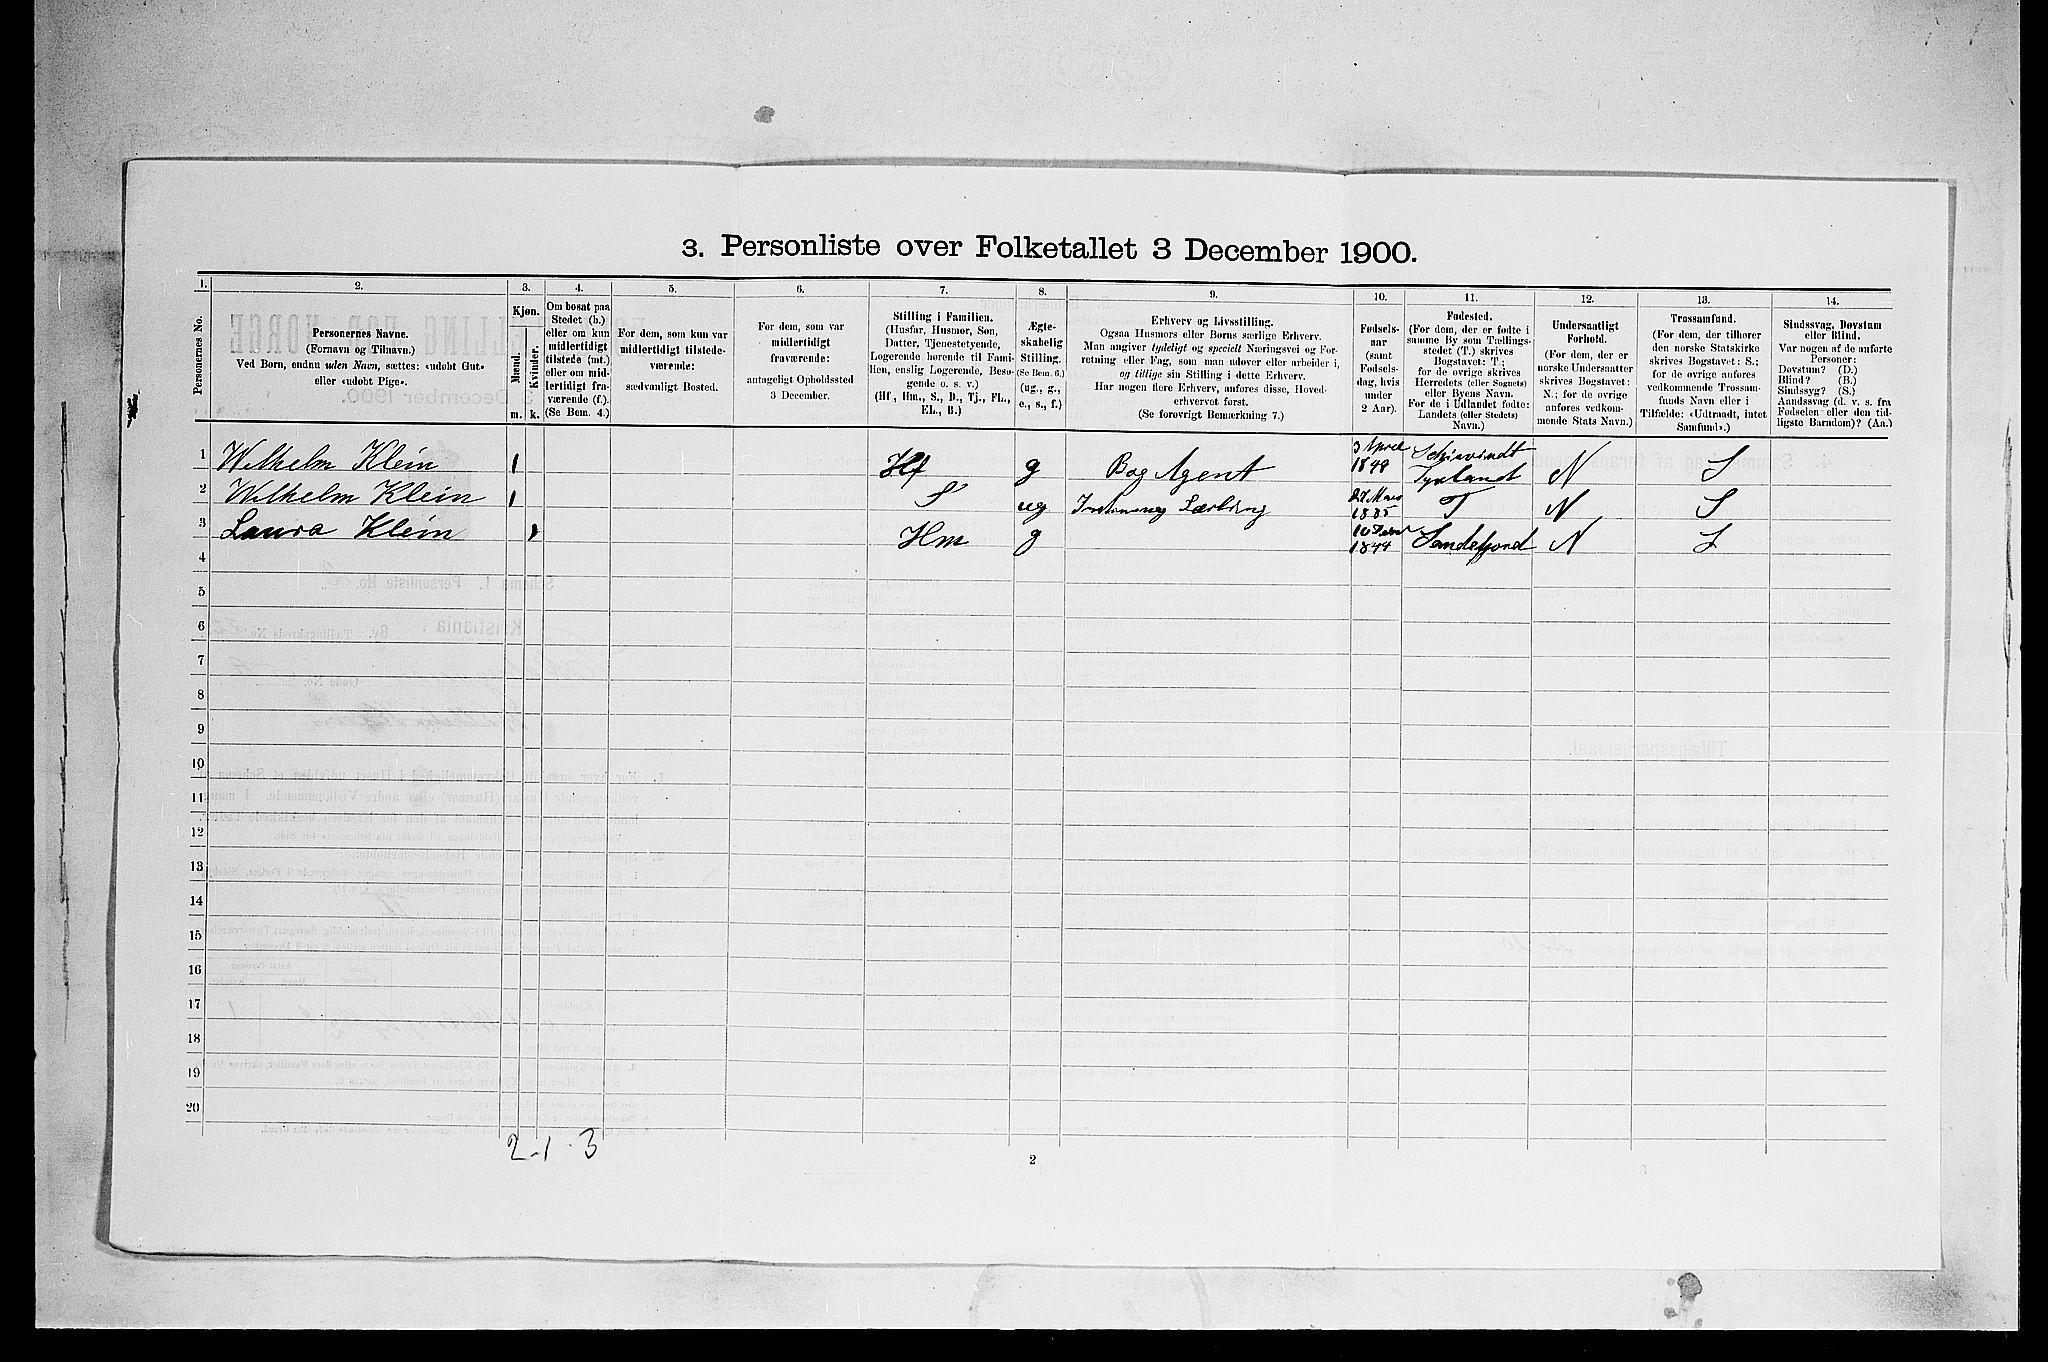 3. Personliste over Folketallet 3 December 1900.
1. 2. 3. 4. 5. 6. 7. 8. 9. 10. 11. 12. 13. 14.
Personernes No.
Personernes Navne.
(Fornavn og Tilnavn.)
Ved Børn, endnu uden Navn, sættes: «udøbt Gut»
eller «udøbt Pige».
Kjøn.
Mænd.
Kvinder.
m. k.
Om bosat paa
Stedet (b.)
eller om kun
midlertidigt
tilstede (mt.)
eller om mid-
lertidigt fra-
værende (f.).
(Se Bem. 4.)
For dem, som kun var
midlertidigt tilstede-
værende:
sædvanligt Bosted.
For dem, som var
midlertidigt
fraværende:
antageligt Opholdssted
3 December.
Stilling i Familien.
(Husfar, Husmor, Søn,
Datter, Tjenestetyende,
Logerende hørende til Fami-
lien, enslig Logerende, Besø-
gende o. s. v.)
(Hf, Hm., S., D., Tj., FL.,
EL., B.)
Ægte-
skabelig
Stilling.
(Se Bem. 6.)
(ug., g.,
e., s., f.)
Erhverv og Livsstilling.
Ogsaa Husmors eller Børns særlige Erhverv.
Man angiver tydeligt og specielt Næringsvei og For-
retning eller Fag, som man udøver eller arbeider i,
og tillige sin Stilling i dette Erhverv.
Har nogen flere Erhverv, anføres disse, Hoved-
erhvervet først.
(Se forøvrigt Bemærkning 7.)
Fødsels-
aar
(samt
Fødsels-
dag, hvis
under
2 Aar).
Fødested.
(For dem, der er fødte i
samme By som Tællings-
stedet (T.) skrives
Bogstavet: T;
for de øvrige skrives
Herredets (eller Sognets)
eller Byens Navn.
For de i Udlandet fødte:
Landets (eller Stedets)
Navn.)
Undersaatligt
Forhold.
(For dem, der er
norske Undersaatter
skrives Bogstavet:
N.; for de øvrige
anføres vedkom-
mende Stats Navn.)
Trossamfund.
(For dem, der tilhører
den norske Statskirke
skrives Bogstavet: S.;
for de øvrige anføres
vedkommende Trossam-
funds Navn eller i
Tilfælde: «Udtraadt, intet
Samfund».)
Sindssvag, Døvstum
eller Blind.
Var nogen af de anførte
Personer:
Døvstum? (D.)
Blind? (B.)
Sindssyg? (S.)
Aandssvag (d. v. s. fra
Fødselen eller den tid-
ligste Barndom)? (Aa.)
1 Wilhelm Klein 1 Hf g Bog Agent 3 April 1848 Tyskland N S
2 Wilhelm Klein 1 S ug Lærling 1885 T N S
3 Laura Klein 1 Hm g 1844 Sandefjord N S
4
5
6
7
8
9
10
11
12
13
14
15
16
17
18
19
20
2 - 1 . 3
2